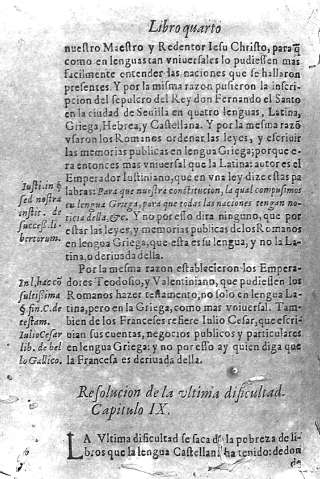 Libro quarto
nuestro Maestro y Redentor Iesu Christo, paraq̃
como en lenguas tan vniuersales lo pudiessen mas
facilmente entender las naciones que se hallaron
presentes. Y por la misma razon pusieron la inscri-
pcion del sepulcro del Rey don Fernando el Santo
en la ciudad de Seuilla en quatro lenguas, Latina,
Griega, Hebrea, y Castellana. Y por la mesma razõ
vsaron los Romanos ordenar las leyes, y escriuir
las memorias publicas en lengua Griega; porque e-
ra entonces mas vniuersal que la Latina: autor es el
Emperador Iustiniano, que en vna ley dize estas pa
labras: Para que nuestra constitucion, la qual compusimos
en lengua Griega, para que todas las naciones tengan no-
ticia della. &c. Y no por esso dira ninguno, que por
estar las leyes, y memorias publicas de los Romanos
en lengua Griega, que esta es su lengua, y no la La-
tina, o deriuada della.
Iusti. in §
sed nostra
instit. de
success. li-
bertorum.
Por la mesma razon establecieron los Empera-
dores Teodosio, y Valentiniano, que pudiessen los
Romanos hazer testamento, no solo en lengua La-
tina, pero en la Griega, como mas vniuersal. Tam-
bien de los Franceses refiere Iulio Cesar, que escri-
uian sus cuentas, negocios publicos y particulares
en lengua Griega; y no por esso ay quien diga que
la Francesa es deriuada della.
In l. hac cõ
sultissima
§. fin. C. de
testam.
Iulio Cesar
lib. de bel
lo Gallico.
Resolucion de la vltima dificultad.
Capitulo IX.
LA Vltima dificultad se saca de la pobreza de li-
bros que la lengua Castellana ha tenido: de don
de